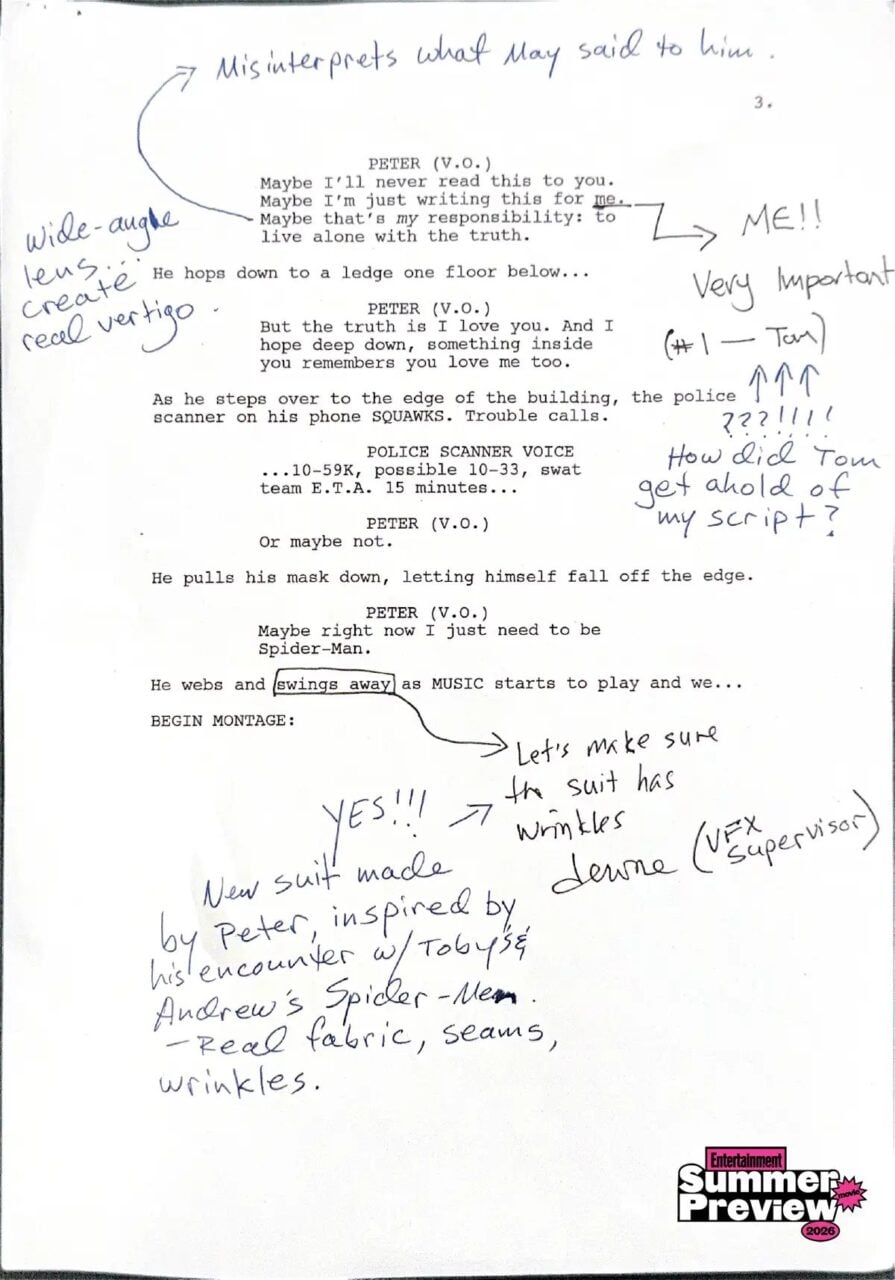 Misinterprets what May said to him.
3.
PETER (V.O.)
Maybe I'll never read this to you.
Maybe I'm just writing this for me.
Maybe that's my responsibility: to
live alone with the truth.
ME!!
Very Important
(#1 — Tom)
???!!!!
How did Tom
get ahold of
my script?
Wide-angle
lens...
create
real vertigo.
He hops down to a ledge one floor below...
PETER (V.O.)
But the truth is I love you. And I
hope deep down, something inside
you remembers you love me too.
As he steps over to the edge of the building, the police
scanner on his phone SQUAWKS. Trouble calls.
POLICE SCANNER VOICE
...10-59K, possible 10-33, swat
team E.T.A. 15 minutes...
PETER (V.O.)
Or maybe not.
He pulls his mask down, letting himself fall off the edge.
PETER (V.O.)
Maybe right now I just need to be
Spider-Man.
He webs and swings away as MUSIC starts to play and we...
BEGIN MONTAGE:
Let's make sure
the suit has
wrinkles
(VFX
Supervisor)
YES!!!
New suit made
by Peter, inspired by
his encounter w/ Toby's &
Andrew's Spider-Men.
- Real fabric, seams,
wrinkles.
Entertainment
Summer
movie
Preview
2026